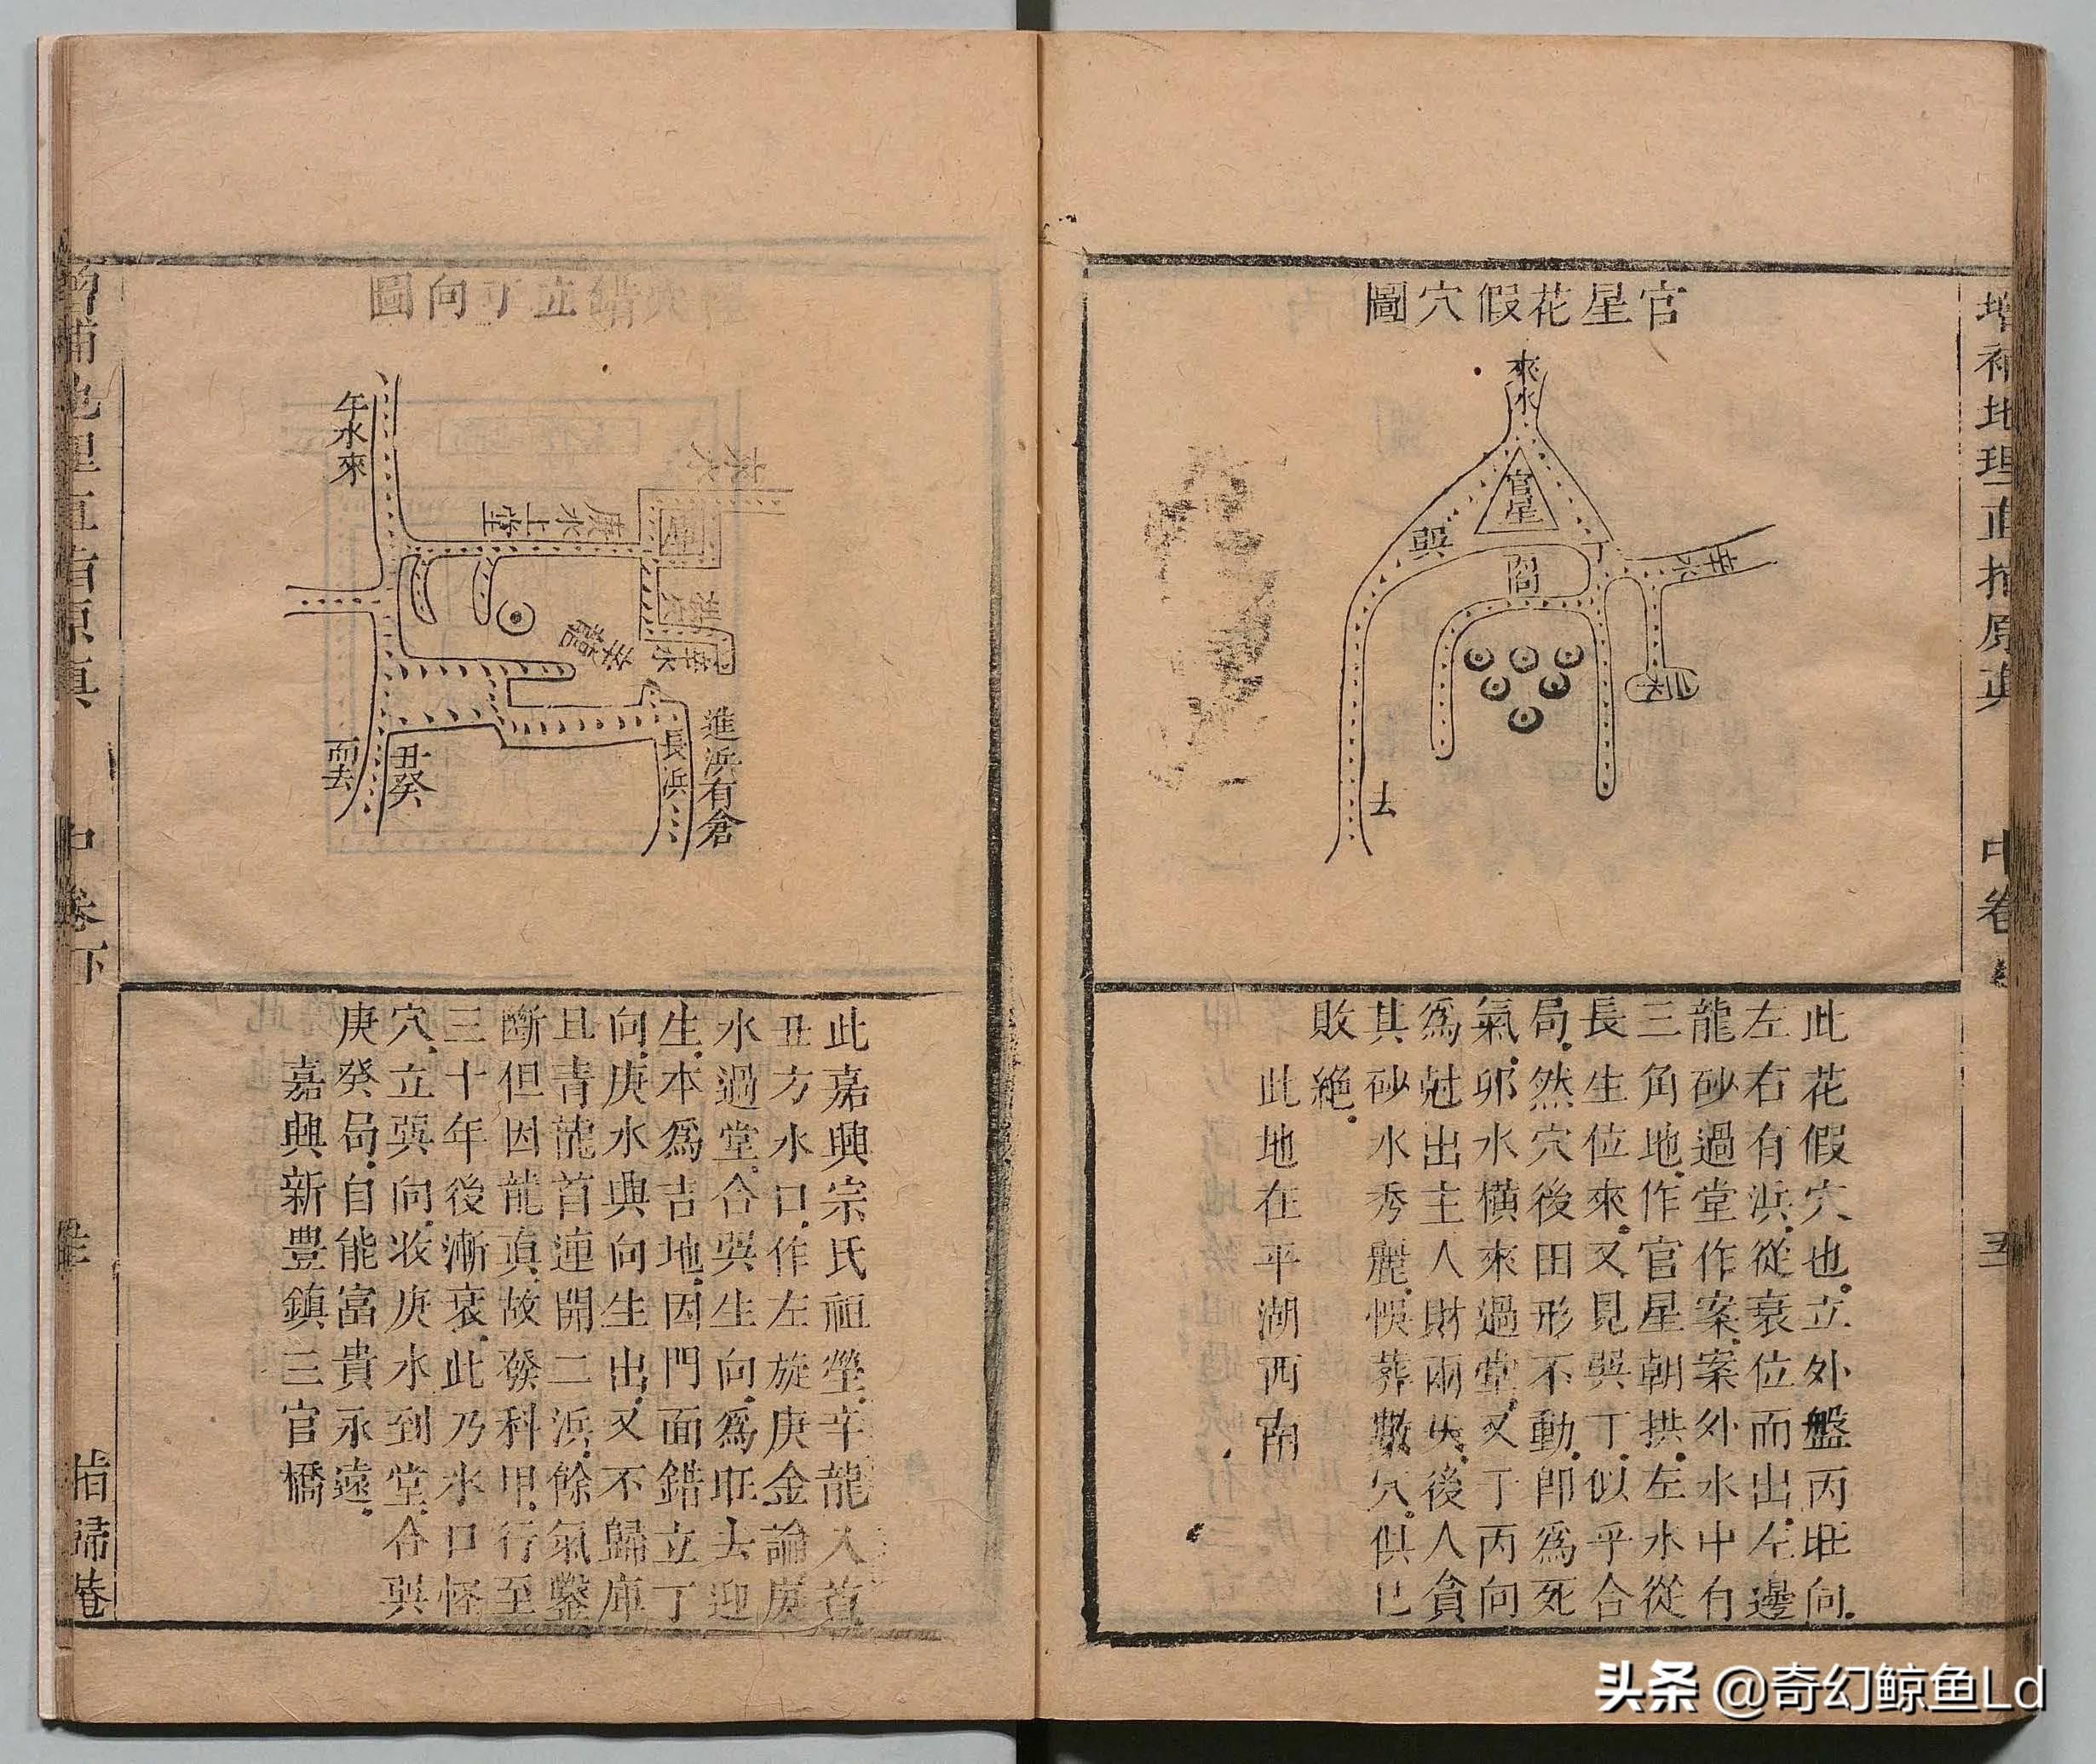 增補地理直指原真
中卷
官星花假穴圖
來水
官星
巽
丁
閣
辛水
去
此花假穴也立外盤丙旺向
左右有浜從衰位而出左邊
龍砂過堂作案案外水中有
三角地作官星朝拱左水從
長生位來又見巽丁似乎合
局然穴後田形不動即為死
氣卯水橫來過堂又丁丙向
為尅出主人財兩失後人貪
其砂水秀麗悞葬數穴俱已
敗絶
此地在平湖西南
立丁向圖
午水來
庚水上堂
辛水
進浜有倉
長浜
丑癸
而去
此嘉興宗氏祖塋辛龍入首
丑方水口作左旋庚金論庚
水過堂合巽生向為旺去迎
生本為吉地因門面錯立丁
向庚水與向生出又不歸庫
且青龍首連開二浜餘氣鑿
斷但因龍真故發科甲行至
三十年後漸衰此乃水口怪
穴立巽向收庚水到堂合巽
庚癸局自能富貴永遠
嘉興新豐鎮三官橋
增補地理直指原真
中卷下
指歸菴
头条 @奇幻鲸鱼Ld